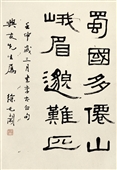 蜀國多僊山
峨眉邈難匹
壬申歲三月書李太白句
先生屬 徐无聞